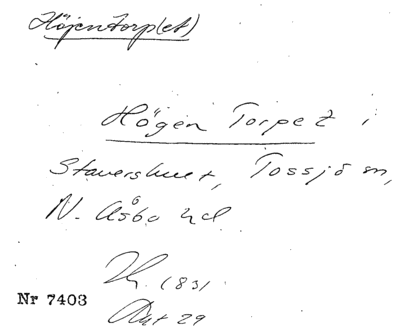 Höjentorp(et)
Högen Torpet i
Stavershult, Tossjö sn,
N. Åsbo hd
1831
Nr 7403
Akt 29